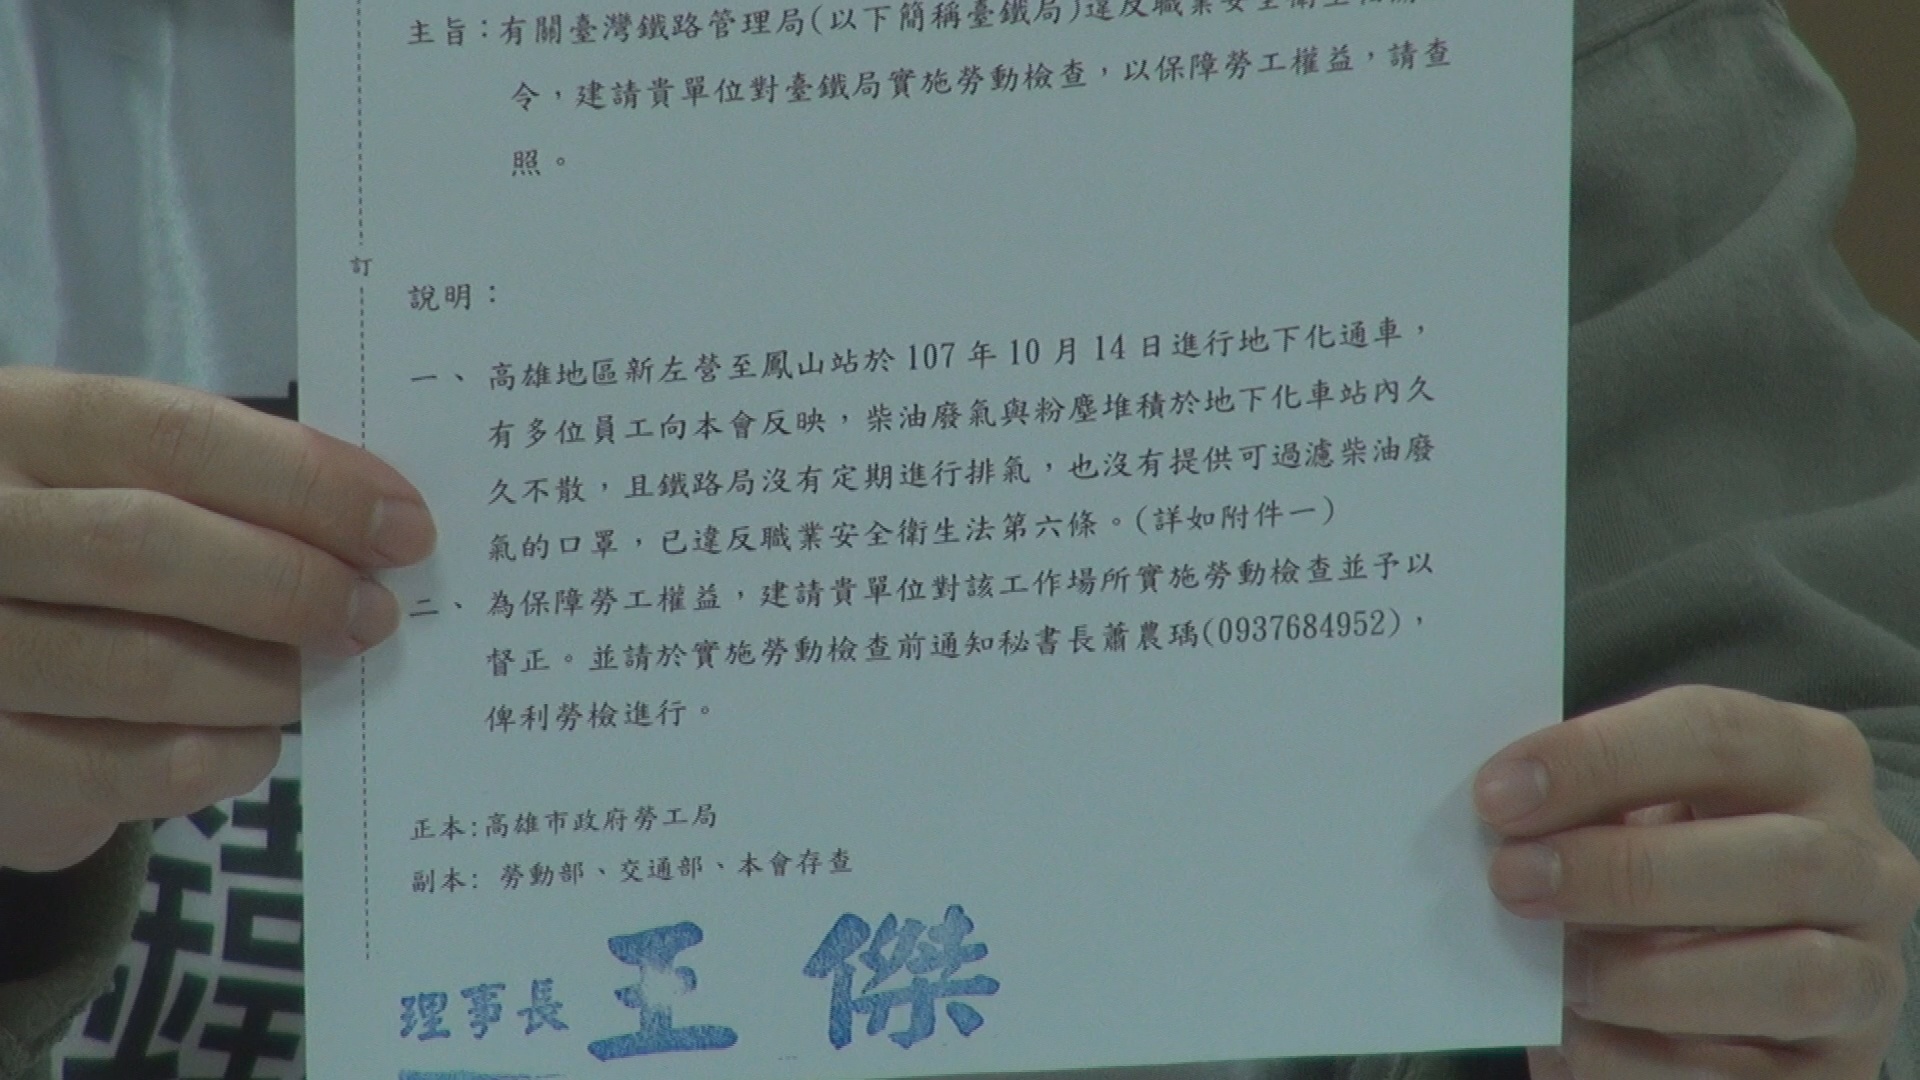 主旨：有關臺灣鐵路管理局(以下簡稱臺鐵局)違反職業安全衛生相關
令，建請貴單位對臺鐵局實施勞動檢查，以保障勞工權益，請查
照。
訂
說明：
一、高雄地區新左營至鳳山站於107年10月14日進行地下化通車，
有多位員工向本會反映，柴油廢氣與粉塵堆積於地下化車站內久
久不散，且鐵路局沒有定期進行排氣，也沒有提供可過濾柴油廢
氣的口罩，已違反職業安全衛生法第六條。(詳如附件一)
二、為保障勞工權益，建請貴單位對該工作場所實施勞動檢查並予以
督正。並請於實施勞動檢查前通知秘書長蕭農瑀(0937684952)，
俾利勞檢進行。
正本:高雄市政府勞工局
副本: 勞動部、交通部、本會存查
理事長 王 傑